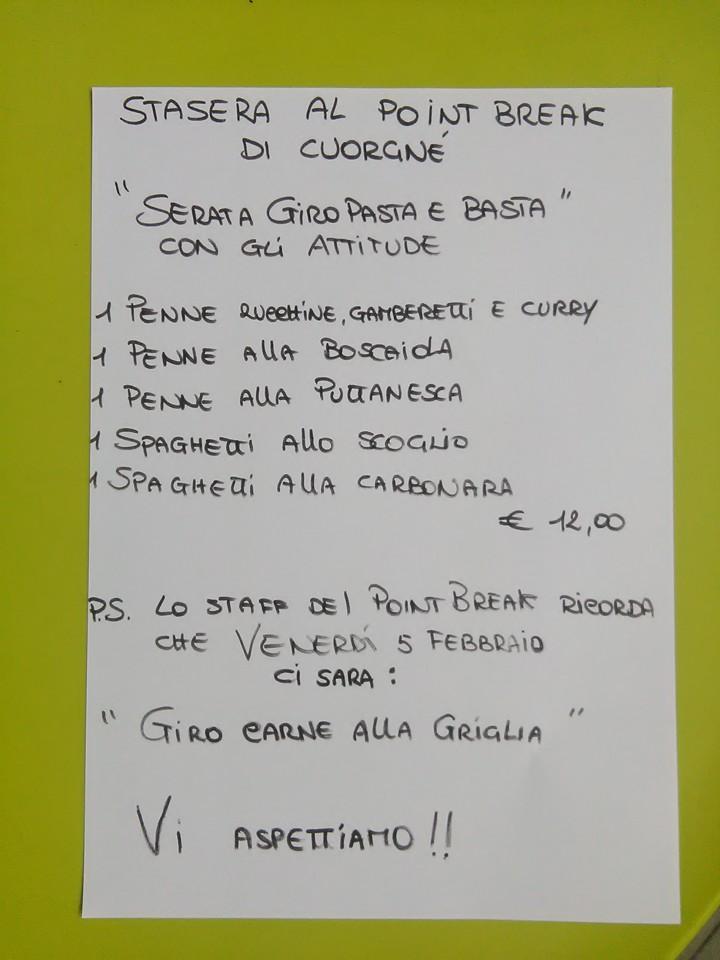 STASERA AL POINT BREAK
DI CUORGNÉ
"SERATA GIRO PASTA E BASTA"
CON GLI ATTITUDE
1 PENNE ZUCCHINE, GAMBERETTI E CURRY
1 PENNE ALLA BOSCAIOLA
1 PENNE ALLA PUTTANESCA
1 SPAGHETTI ALLO SCOGLIO
1 SPAGHETTI ALLA CARBONARA
€ 12,00
P.S. LO STAFF DEL POINT BREAK RICORDA
CHE VENERDÍ 5 FEBBRAIO
CI SARA:
"GIRO CARNE ALLA GRIGLIA"
VI ASPETTIAMO!!